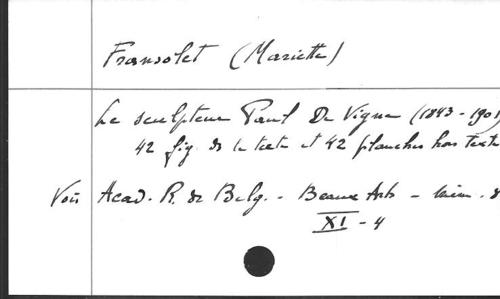 Fransolet (Mariette)
Le sculpteur Paul De Vigne (1843-1901)
42 fig. ds le texte et 42 planches hors texte
Voir Acad. R. de Belg. - Beaux Arts - Mém.
XI - 4